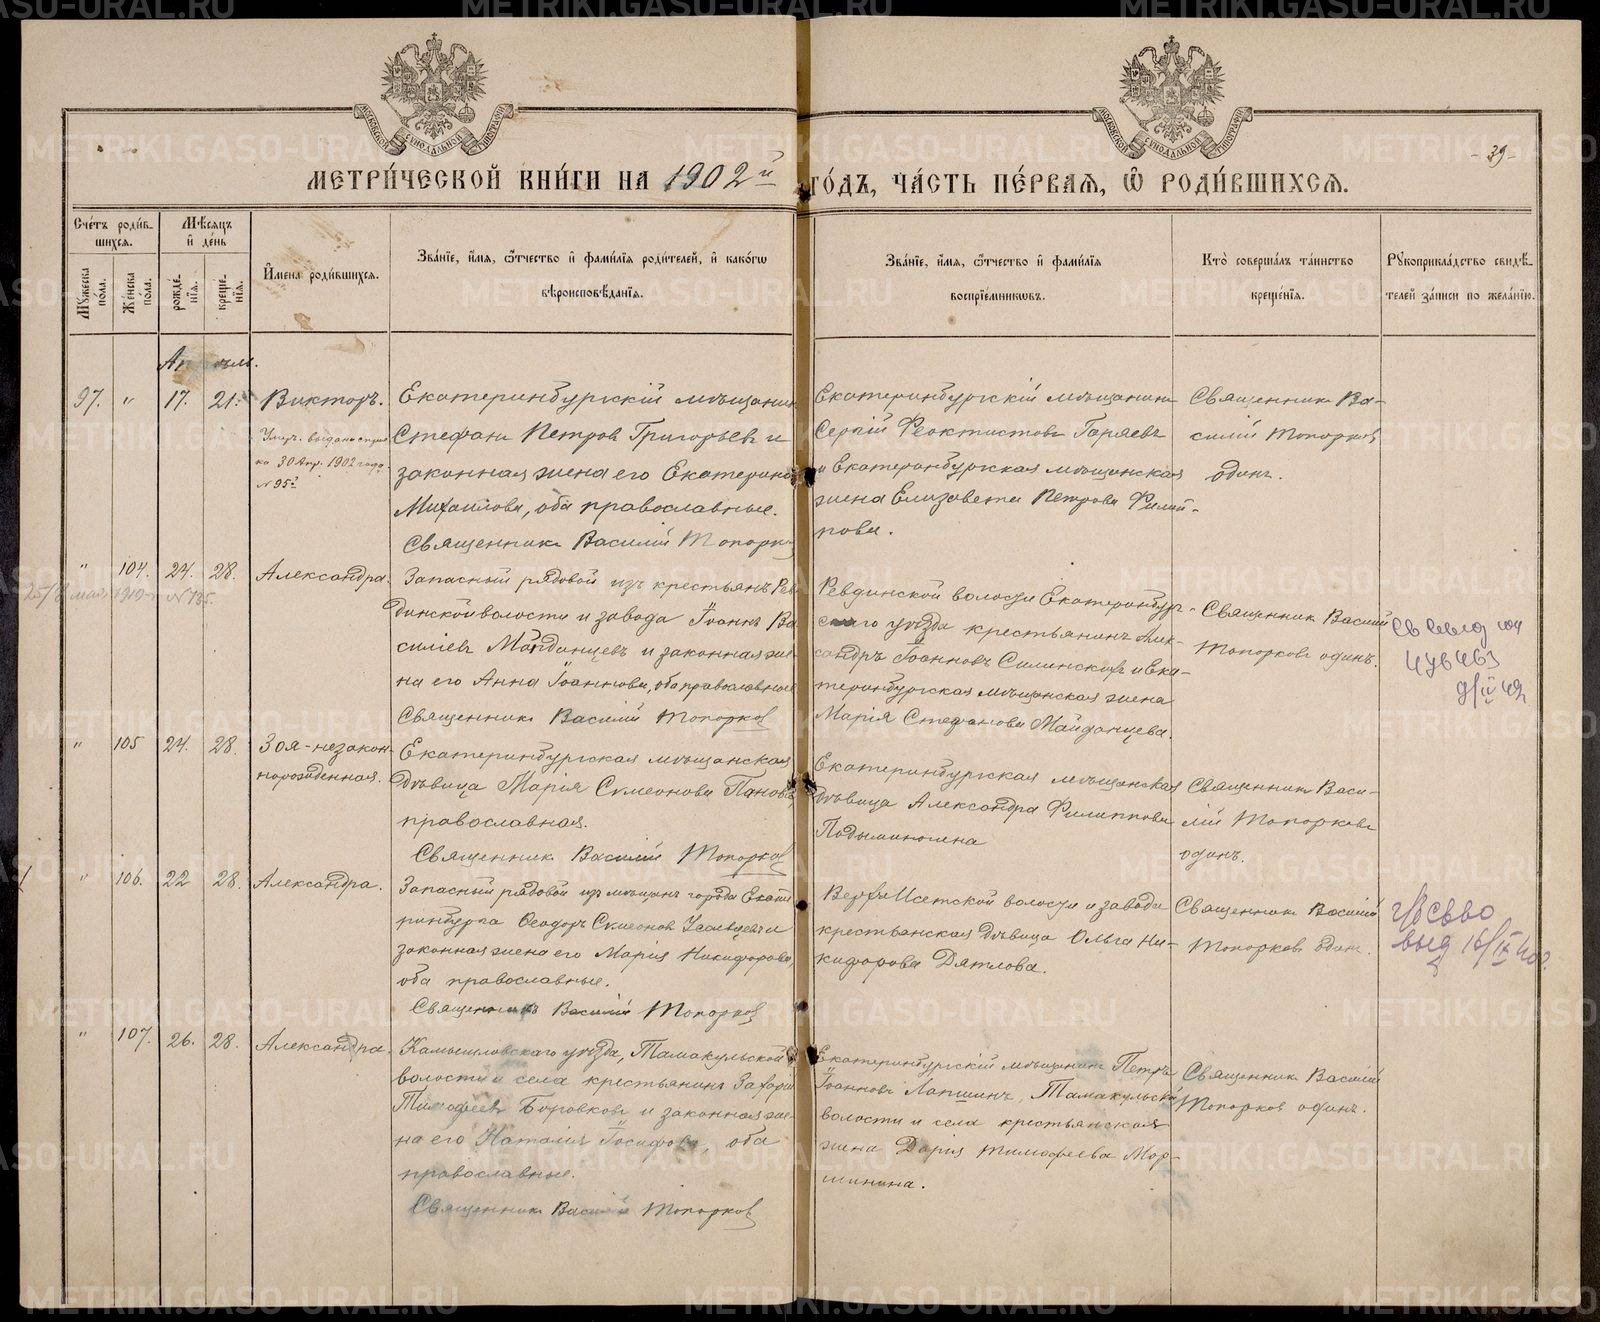 METRIKI.GASO-URAL.RU
- 39 -
МЕТРИ́ЧЕСКОЙ КНИ́ГИ НА 1902й ГО́ДЪ, ЧА́СТЬ ПЕ́РВАЯ, Ѡ҆ РОДИ́ВШИХСЯ.
Сче́тъ роди́вшихся.
Мѹжеска пола.
Же́нска по́ла.
Мѣсяцъ и҆ де́нь
рожде́нїя.
креще́нїя.
И҆мена роди́вшихся.
Зва́нїе, и҆́мя, ѻ҆́тчество и҆ фами́лїя роди́телей, и҆ како́гѡ
вѣроисповѣ́данїя.
Зва́нїе, и҆́мя, ѻ҆́тчество и҆ фами́лїя
воспрїе́мникѡвъ.
Кто̀ соверша́лъ та́инство
креще́нїя.
Рѹкоприкла́дство свидѣ́-
телей за́писи по жела́нїю.
Апрѣль.
97. " 17. 21. Викторъ.
Умеръ. выдана справка 30 Апр. 1902 года
№ 95
Екатеринбургскій мѣщанинъ
Стефанъ Петровъ Григорьевъ и
законная жена его Екатерина
Михаилова, оба православные.
Священникъ Василій Топорковъ
Екатеринбургскій мѣщанинъ
Сергій Феоктистовъ Горяевъ
и Екатеринбургская мѣщанская
жена Елизавета Петрова Филип-
пова.
Священникъ Ва-
силій Топорковъ
одинъ.
" 104. 24. 28. Александра.
мая 1919 г. № 135.
Запасный рядовой изъ крестьянъ Рев-
динской волости и завода Іоаннъ Ва
силіевъ Майданцевъ и законная же-
на его Анна Іоаннова, оба православные
Священникъ Василій Топорковъ
Ревдинской волости Екатеринбург-
скаго уѣзда крестьянинъ Алек-
сандръ Іоанновъ Силинскихъ и Ека-
теринбургская мѣщанская жена
Марія Стефанова Майданцева.
Священникъ Василій
Топорковъ одинъ.
" 105 24. 28. Зоя - незакон-
норожденная.
Екатеринбургская мѣщанская
дѣвица Марія Симеонова Панова,
православная.
Священникъ Василій Топорковъ
Екатеринбургская мѣщанская
дѣвица Александра Филиппова
Подыминогина
Священникъ Васи-
лій Топорковъ
одинъ.
" 106. 22 28. Александра.
Запасный рядовой изъ мѣщанъ города Екате
ринбурга Ѳеодоръ Симеоновъ и
законная жена его Марія Никифорова,
оба православные.
Священникъ Василій Топорковъ
Верхъ-Исетской волости и завода
крестьянская дѣвица Ольга Ни-
кифорова Дятлова.
Священникъ Василій
Топорковъ одинъ.
выд 16/IX 40г.
" 107. 26. 28. Александра.
Камышловскаго уѣзда, Тамакульской
волости и села крестьянинъ Захарій
Тимофеевъ Боровковъ и законная же-
на его Наталія Іосифова, оба
православные.
Священникъ Василій Топорковъ
Екатеринбургскій мѣщанинъ Петръ
Іоанновъ Лапшинъ, Тамакульской
волости и села крестьянская
жена Дарія Тимофеева Мор-
шинина.
Священникъ Василій
Топорковъ одинъ.